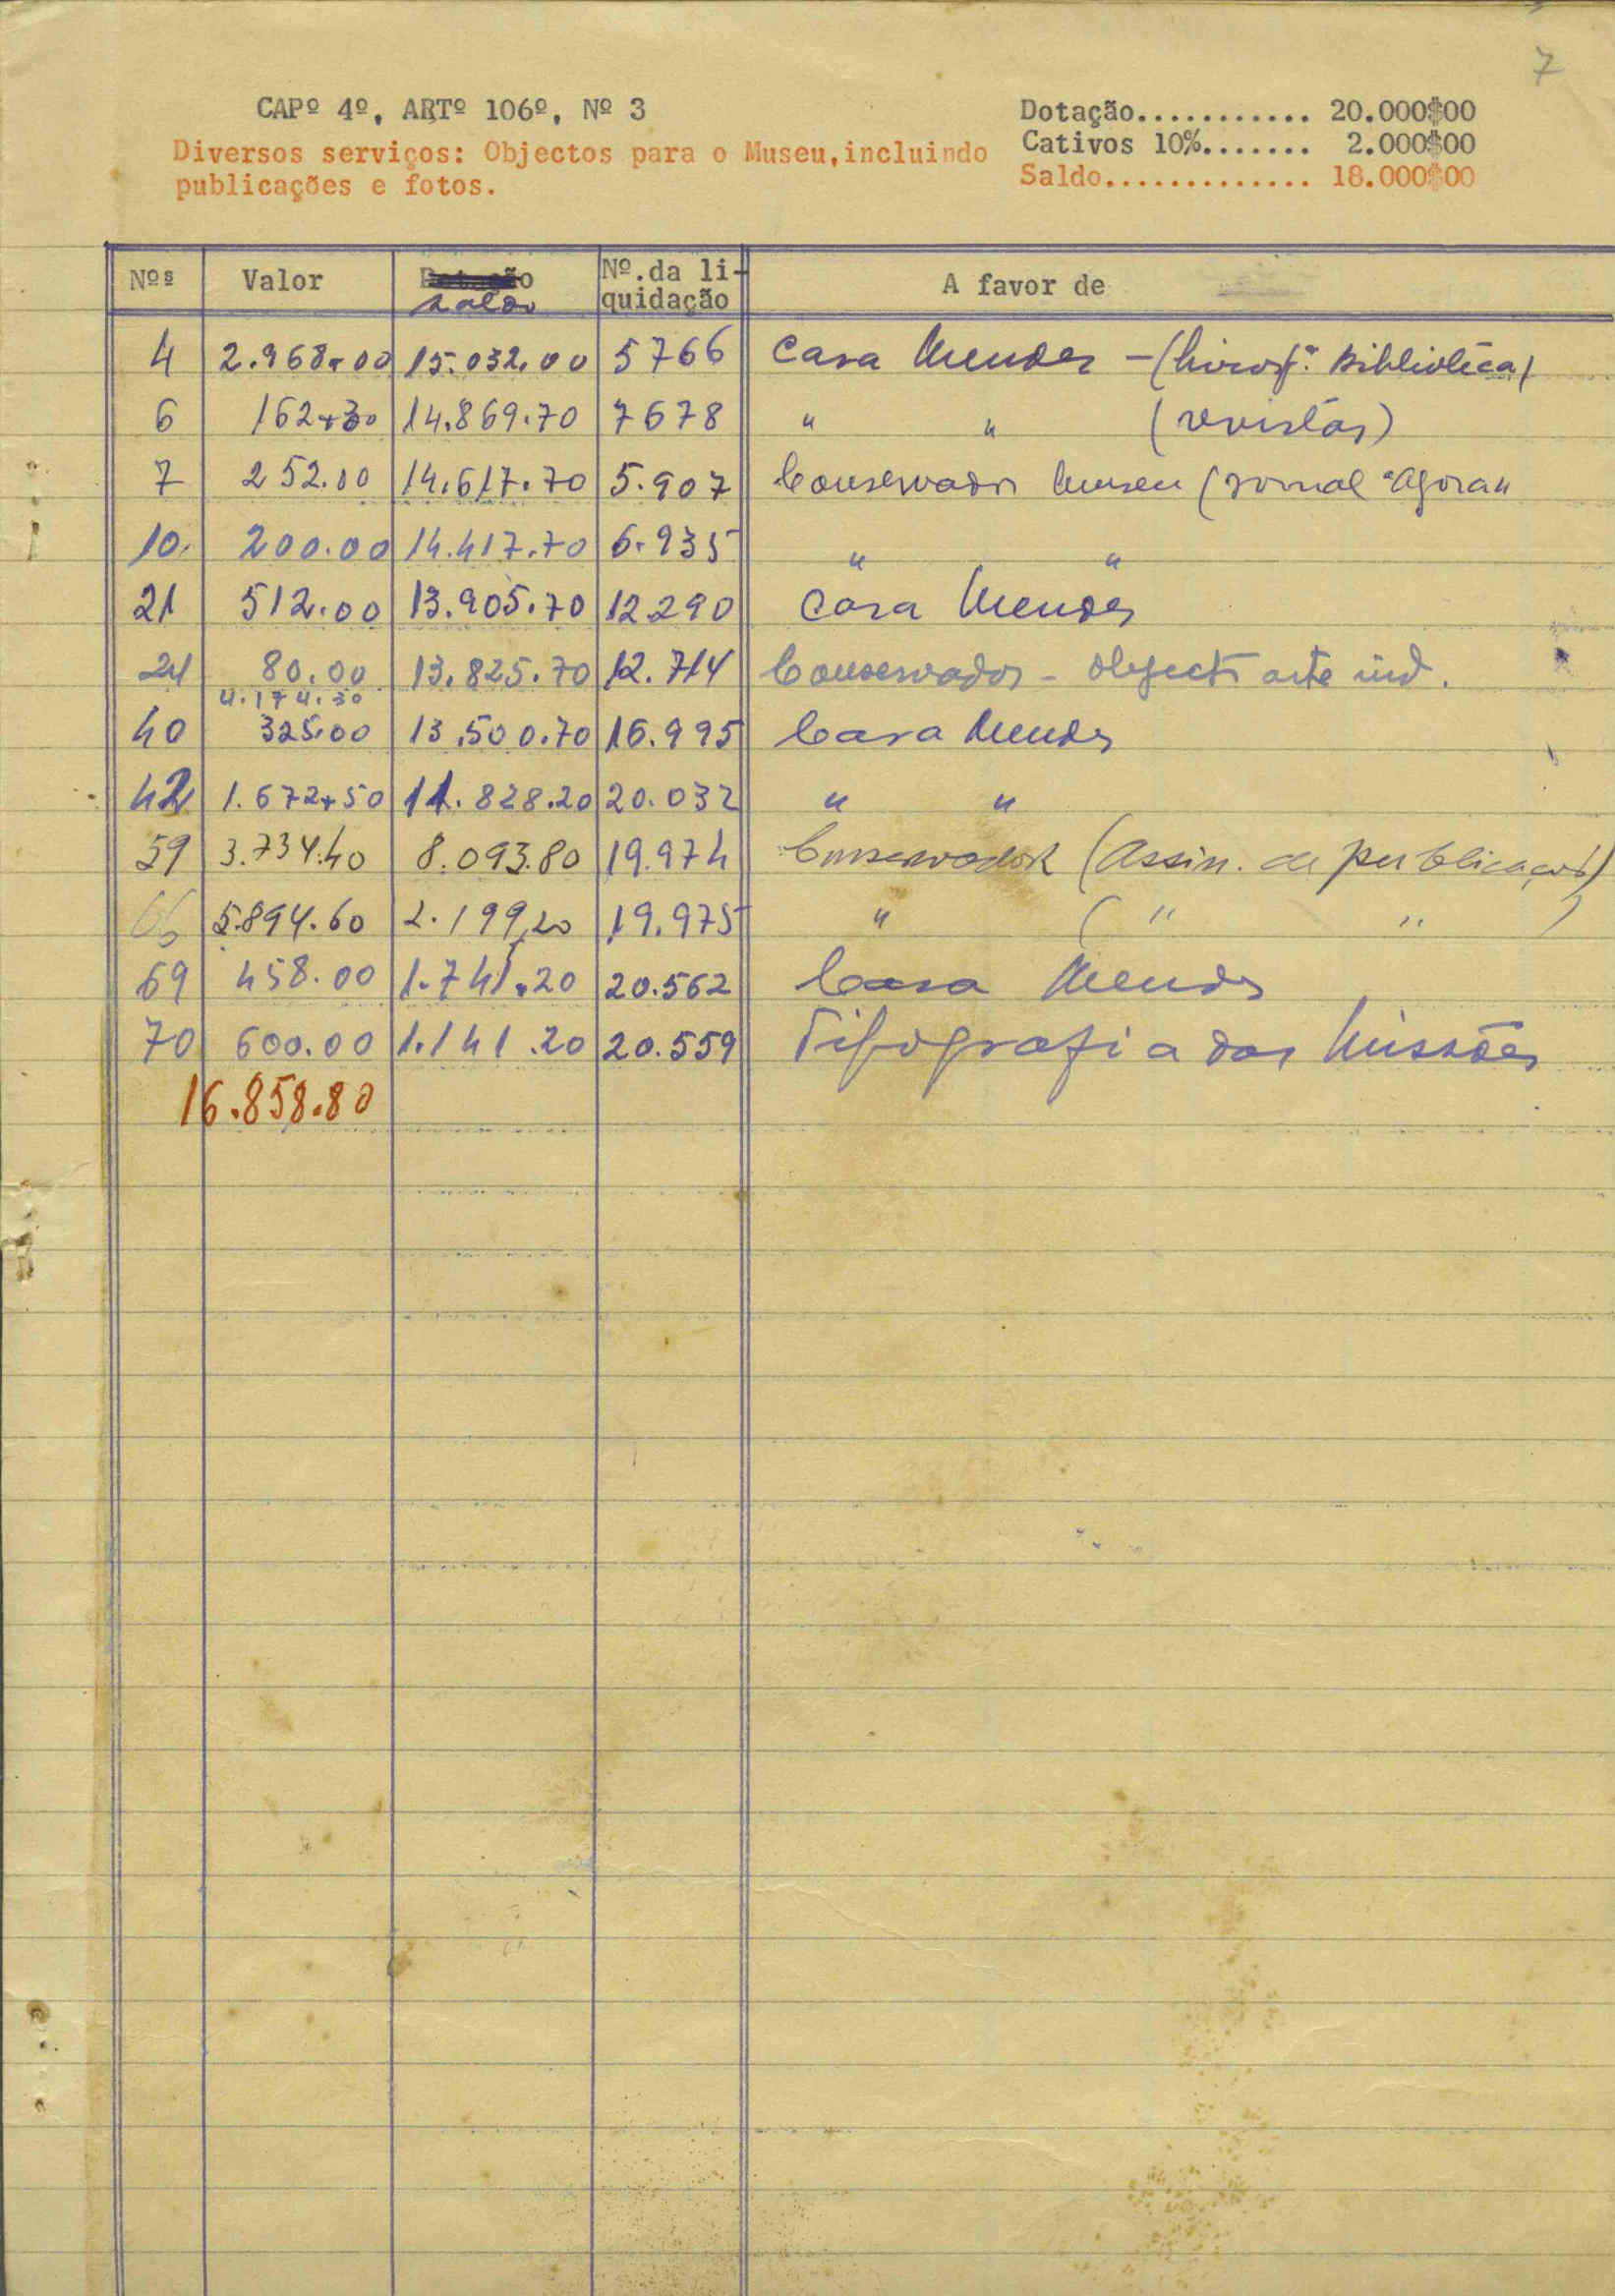 7
CAPº 4º, ARTº 106º, Nº 3
Dotação........... 20.000$00
Diversos serviços: Objectos para o Museu,incluindo
Cativos 10%....... 2.000$00
publicações e fotos.
Saldo............. 18.000$00
Nºs Valor Dotação saldo Nº.da li- A favor de
quidação
4 2.968.00 15.032.00 5766 Casa Mendes - (Livros pª Biblioteca)
6 162.30 14.869.70 7678 " " (revistas)
7 252.00 14.617.70 5.907 Conservador Museu (jornal "Agora"
10. 200.00 14.417.70 6.935 " "
21 512.00 13.905.70 12290 Casa Mendes
24 80.00 13.825.70 12.714 Conservador - objects arte ind.
4.174.30
40 325.00 13.500.70 16.995 Casa Mendes
42 1.672.50 11.828.20 20.032 " "
59 3.734.40 8.093.80 19.974 Conservador (Assin. de publicações)
66 5.894.60 2.199,20 19.975 " ( " " )
69 458.00 1.741.20 20.562 Casa Mendes
70 600.00 1.141.20 20.559 Tipografia das Missões
16.858.80